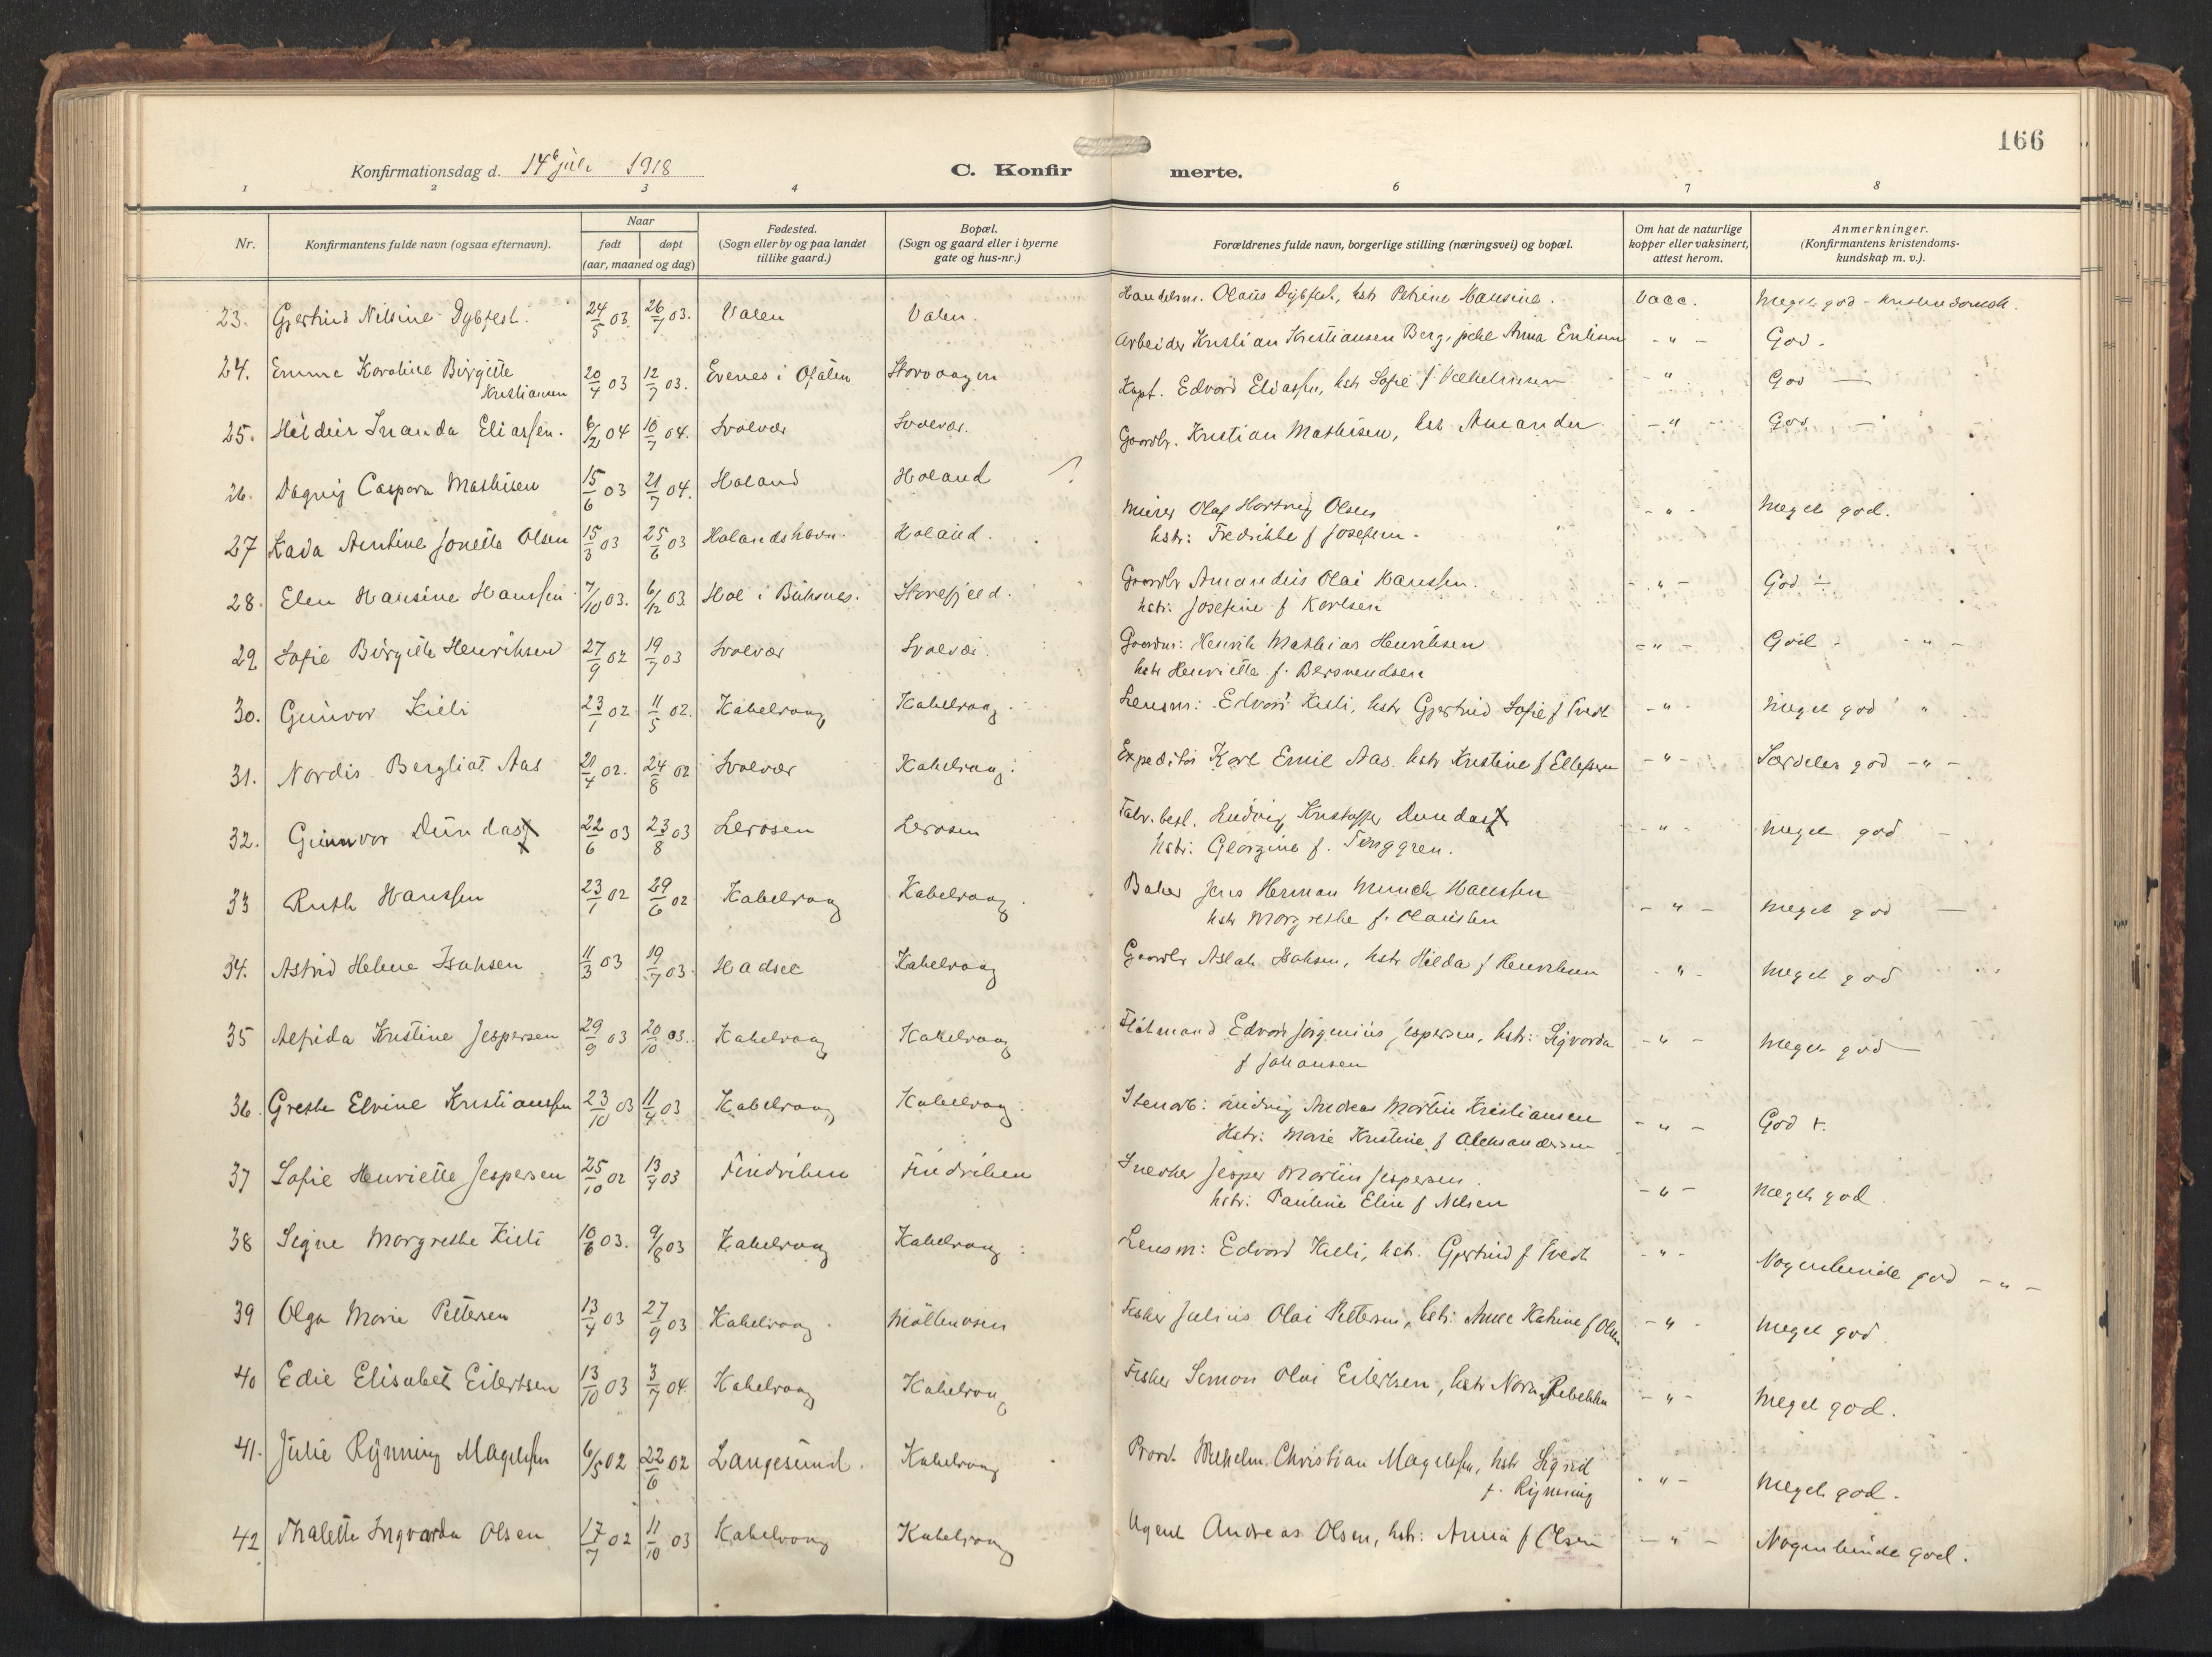 166
Konfirmationsdag d. 14 juli 1918
C. Konfirmerte.
1 2 3 4 6 7 8
Nr.
Konfirmantens fulde navn (ogsaa efternavn).
Naar
født døpt
(aar, maaned og dag)
Fødested.
(Sogn eller by og paa landet
tillike gaard.)
Bopæl.
(Sogn og gaard eller i byerne
gate og hus-nr.)
Forældrenes fulde navn, borgerlige stilling (næringsvei) og bopæl.
Om hat de naturlige
kopper eller vaksinert,
attest herom.
Anmerkninger.
(Konfirmantens kristendoms-
kundskap m. v.).
23. Gjertrud Nilsine Dybfest. 24/5 03. 26/7 03. Valen Valen. Handelsm. Olaus Dybfest, hstr Petrine Hansine. Vacc. Meget god - kristendomsk.
24. Emma Karoline Birgitte
Kristiansen 20/4 03 12/7 03. Evenes i Ofoten Storvaagen Arbeider Kristian Kristiansen Berg, pike Anna Eriksen - " - God.
25. Hildur Inanda Eliassen. 6/2 04 10/7 04. Svolvær Svolvær. Kapt. Edvard Eliassen, hstr Sofie f Vilhelmsen " God —
26. Dagny Caspara Mathisen 15/6 03 21/7 04. Holand Holand Gaardbr. Kristian Mathisen, hstr Amanda - " - God —
27 Kada Antine Jonette Olsen 15/3 03 25/6 03 Holandshavn. Holand. Murer Olaf Hartvig Olsen
hstr: Fredrikke f Josefsen. - " - Meget god.
28. Elen Hansine Hanssen 7/10 03. 6/12 03. Hol i Buksnes. Storefjeld. Gaardbr Amandus Olai Hanssen.
hstr: Josefine f Karlsen - " - God ÷
29 Sofie Birgitte Henriksen 27/9 02 19/7 03 Svolvær Svolvær. Gaardbr: Henrik Mathias Henriksen
hstr Henriette f. Bersvendsen - " - God - " -
30. Gunvor Kiili 23/1 02 11/5 02. Kabelvaag Kabelvaag. Lensm: Edvard Kiili, hstr Gjertrud Sofie f Tvedt - " - Meget god "
31. Nordis Bergliot Aas 21/4 02. 24/8 02 Svolvær Kabelvaag. Expeditør Karl Emil Aas. hstr Kristine f Ellefsen - " - Særdeles god - " -
32. Gunnvor Dundas 22/6 03 23/8 03 Lerosen Lerosen Fabr. best. Ludvig Kristoffer Dundas
hstr: Georgine f. Tenggren. - " - Meget god -
33 Ruth Hanssen 23/1 02 29/6 02 Kabelvaag Kabelvaag. Baker Jens Herman Munch Hanssen
hstr Margrethe f. Olausen - " - Meget god —
34. Astrid Helene Isaksen 11/3 03 19/7 03. Hadsel Kabelvaag Gaardbr Aslak Isaksen, hstr Hilda f Henriksen - " - Meget god
35 Alfrida Kristine Jespersen 29/9 03 20/10 03. Kabelvaag Kabelvaag Edvard Jørgenius Jespersen, hstr: Sigvarda
f Johansen - " - Meget god —
36. Grethe Elvine Kristianssen 23/10 03 11/4 03 Kabelvaag Kabelvaag. Stenarb: Ludvig Andreas Martin Kristiansen
Hstr: Marie Kristine f Aleksandersen - " - God +.
37 Sofie Henriette Jespersen 25/10 02 13/4 03 Findviken Findviken Snedker Jesper Martin Jespersen.
hstr: Pauline Elise f Nilsen - " - Meget god.
38 Signe Margrethe Kiili 10/6 03. 9/8 03 Kabelvaag Kabelvaag: Lensm: Edvard Kiili, hstr. Gjertrud f Tvedt - " - Nogenlunde god - " -
39 Olga Marie Pettersen 13/4 03 27/9 03 Kabelvaag. Møllenosen Fisker Julius Olai Pettersen, hstr: Anne Katrine f Olsen - " - Meget god.
40 Edie Elisabet Eilertsen 13/10 03 3/7 04. Kabelvaag Kabelvaag Fisker Simon Olai Eilertsen, hstr Nora Rebekka - " - Meget god.
41. Julie Rynning Magelssen 6/5 02 22/6 02 Langesund. Kabelvaag Provst Wilhelm Christian Magelssen, hstr Sigrid
f. Rynning - " - Meget god.
42 Thalette Ingvarda Olsen 17/7 02 11/10 03 Kabelvaag Kabelvaag Agent Andreas Olsen, hstr: Anna f Olsen - " - Nogenlunde god.